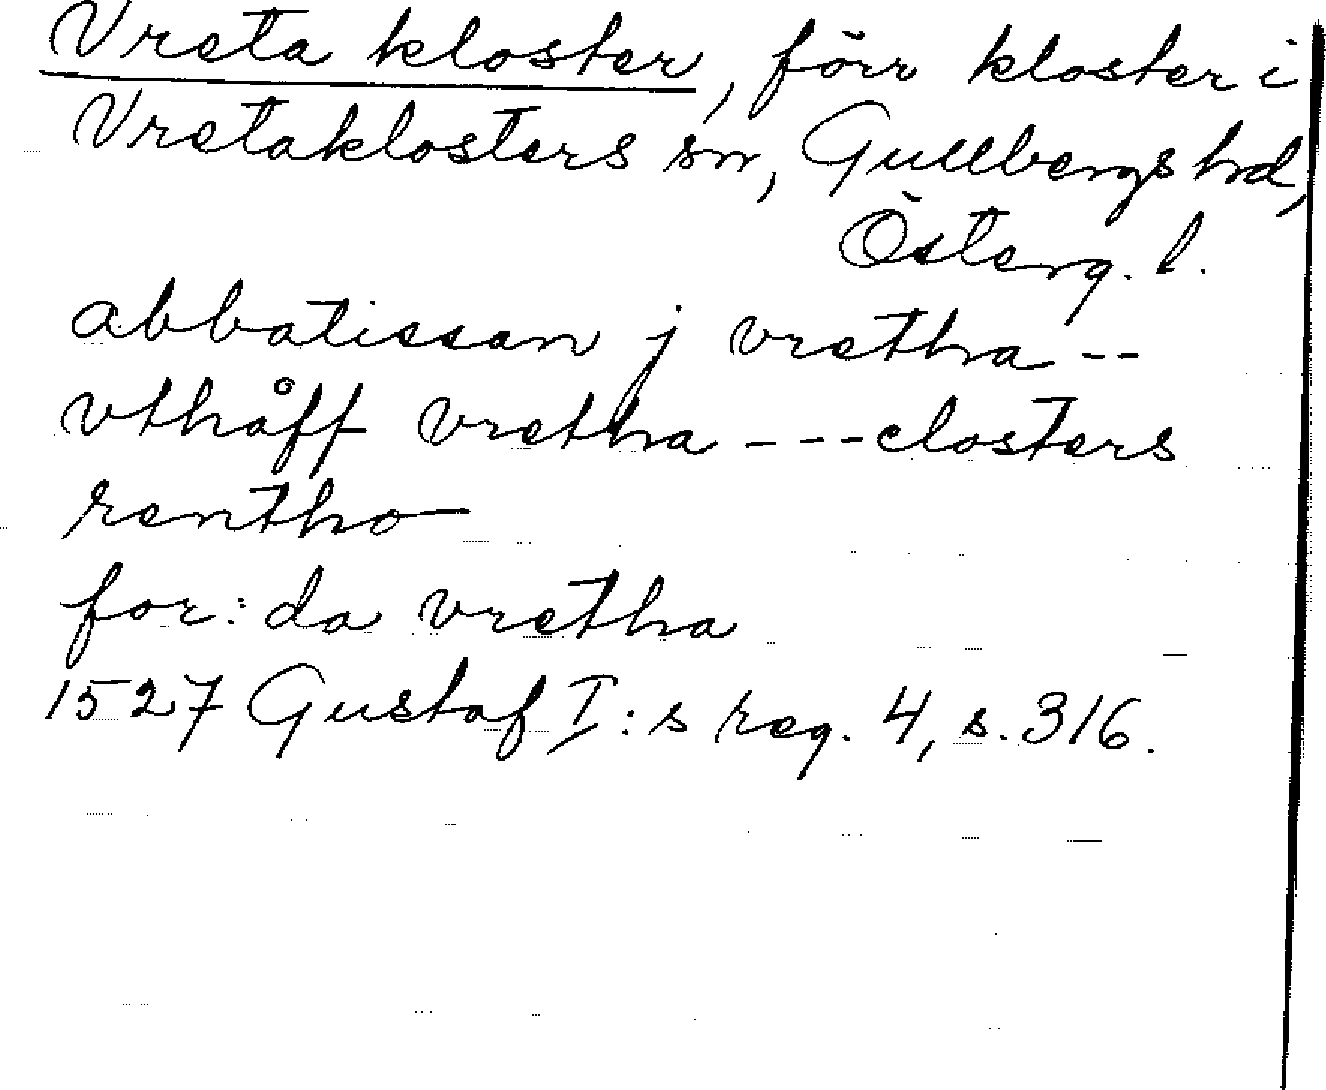 Vreta kloster, förr kloster i
Vretaklosters sn, Gullbergs hd,
Österg. l.
abbatissan j vretha --
vthåff vretha --- closters
rentho
for: da vretha
1527 Gustaf I:s reg. 4, s. 316.